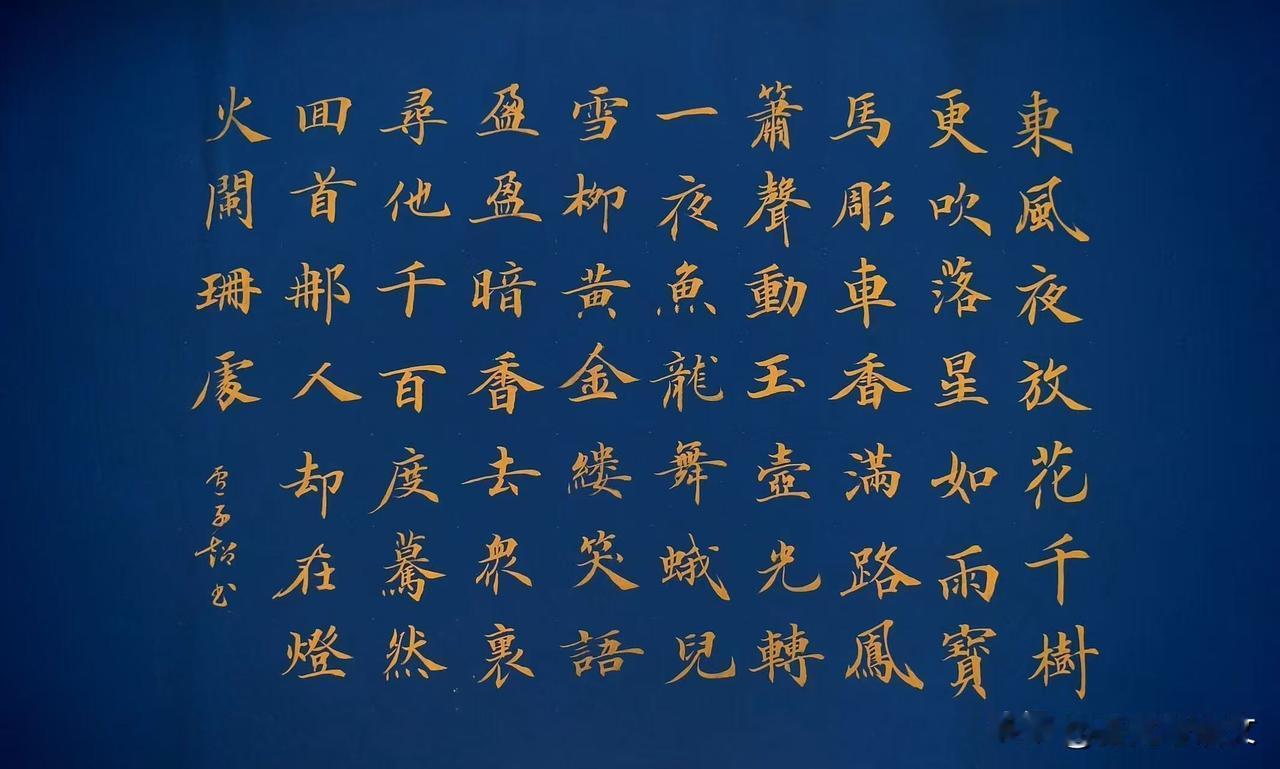 東風夜放花千樹
更吹落星如雨寶
馬彫車香滿路鳳
簫聲動玉壺光轉
一夜魚龍舞蛾兒
雪柳黄金縷笑語
盈盈暗香去衆裏
尋他千百度驀然
囬首那人却在燈
火闌珊處